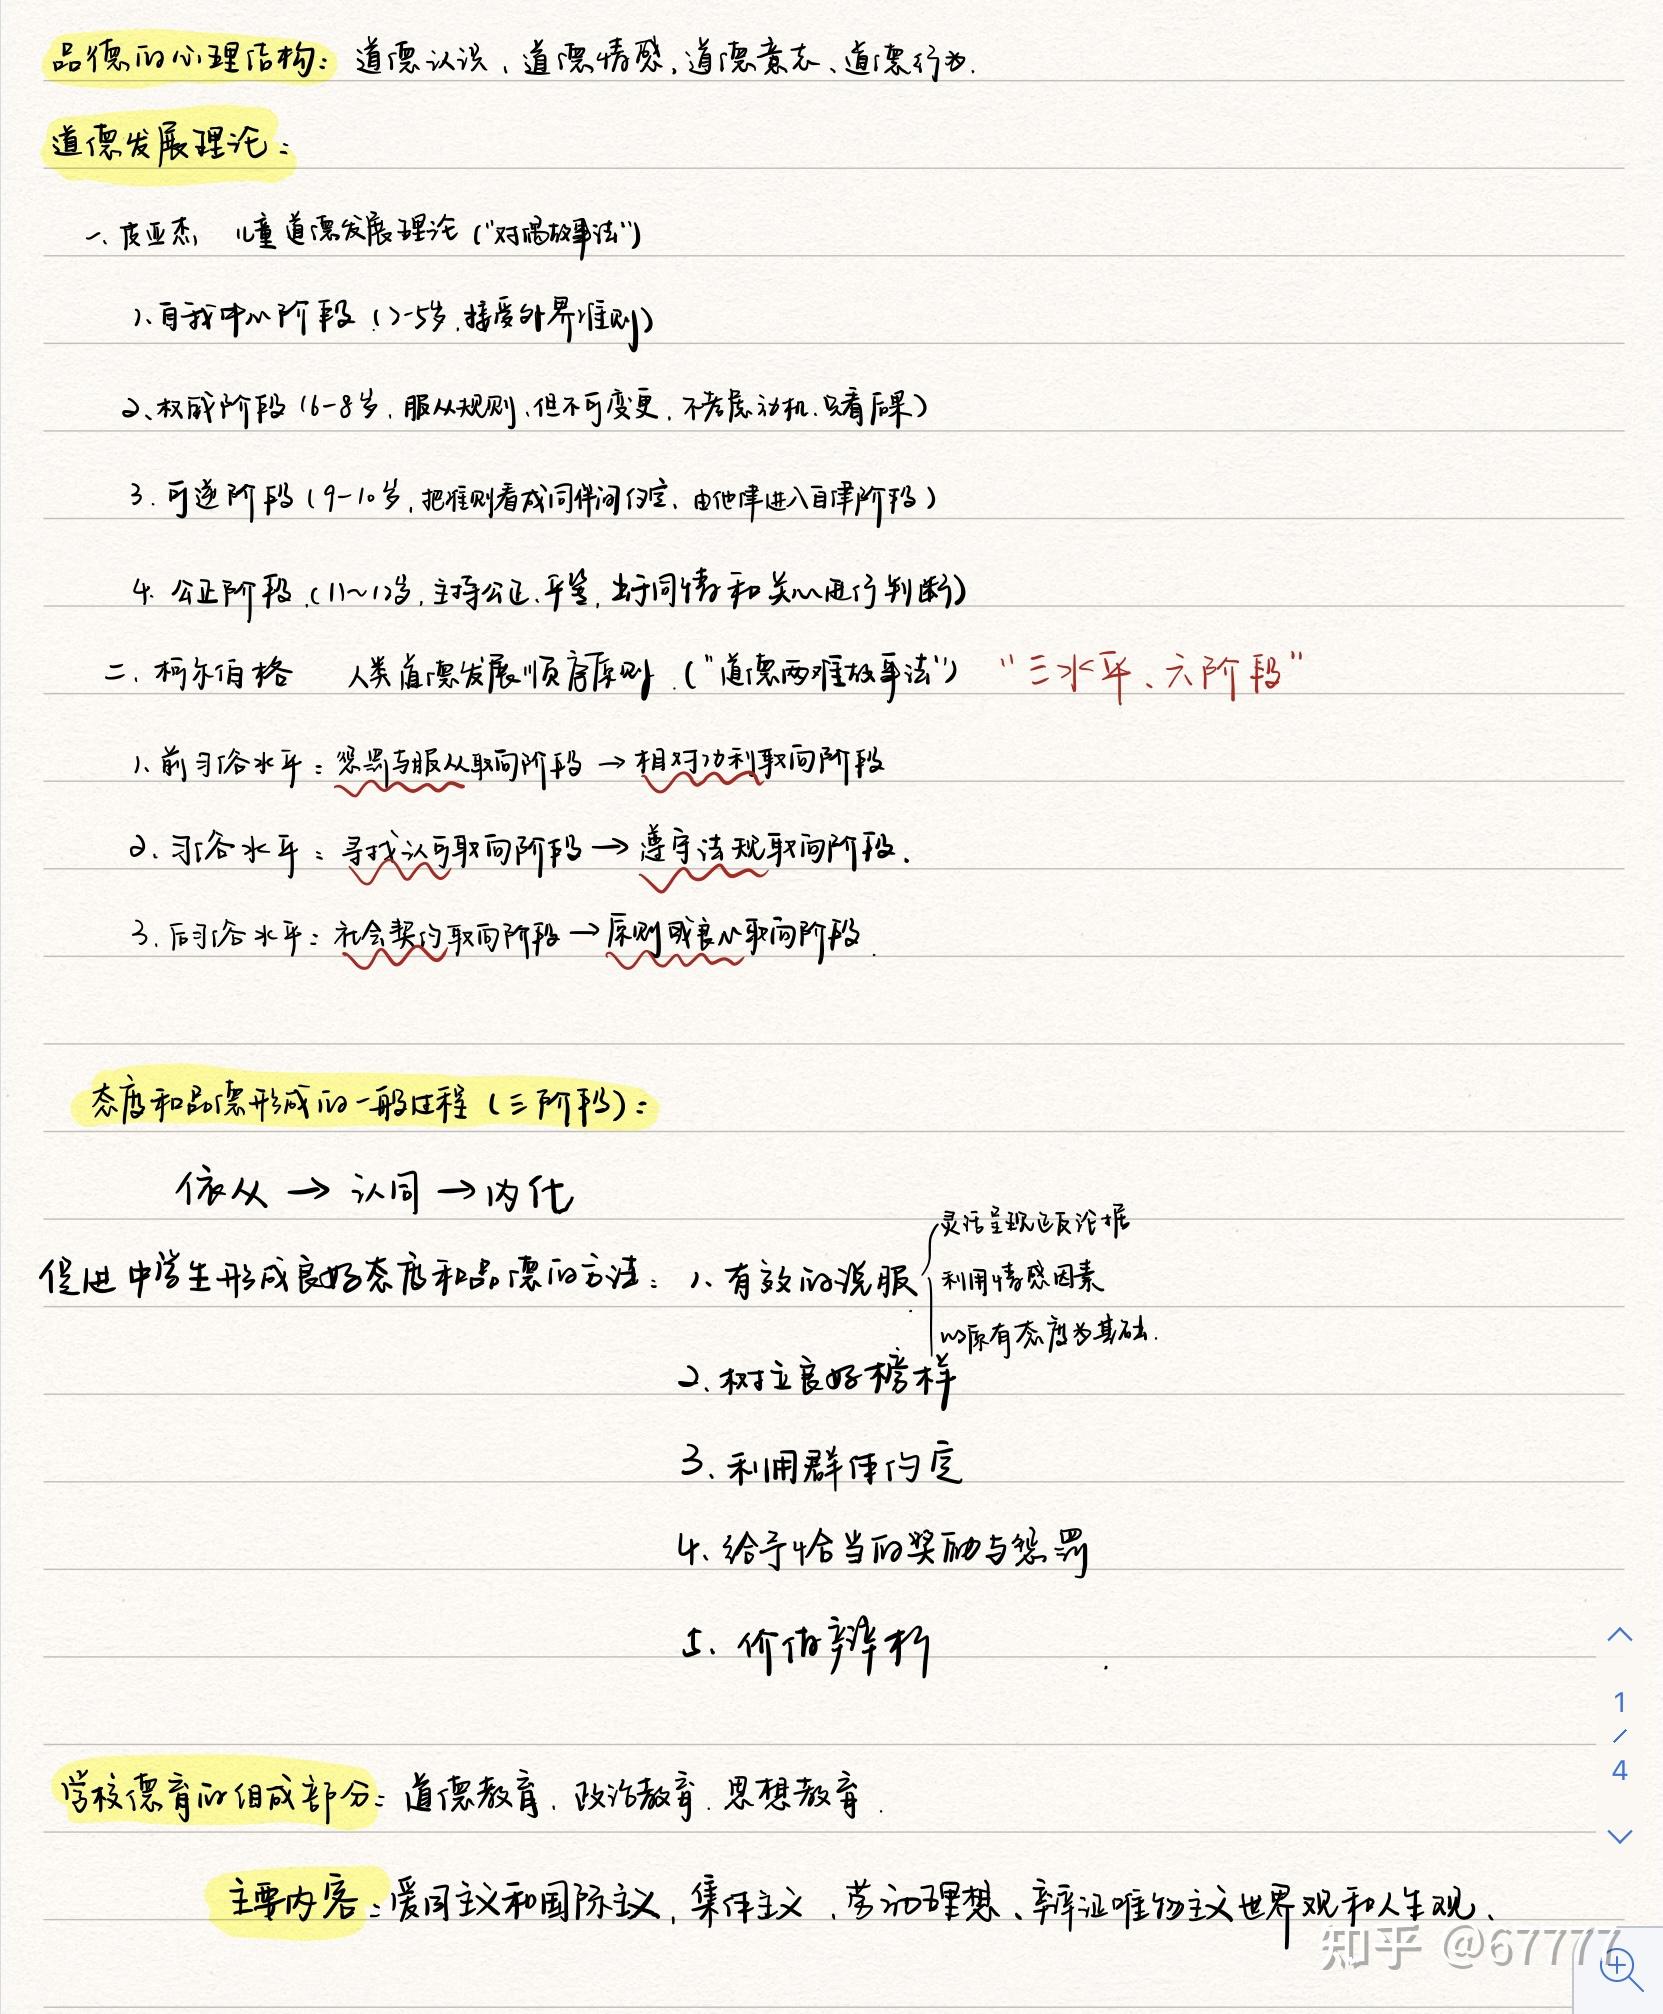 品德的心理结构：道德认识、道德情感、道德意志、道德行为.
道德发展理论：
一、皮亚杰， 儿童道德发展理论（“对偶故事法”）
1、自我中心阶段（2-5岁，接受外界准则）
2、权威阶段（6-8岁，服从规则，但不可变更，不考虑动机、只看后果）
3. 可逆阶段（9-10岁，把准则看成同伴间约定、由他律进入自律阶段）
4. 公正阶段（11~12岁，主持公正、平等，出于同情和关心进行判断）
二、柯尔伯格 人类道德发展顺序原则.（“道德两难故事法”） “三水平、六阶段”
1、前习俗水平：惩罚与服从取向阶段→相对功利取向阶段
2、习俗水平：寻找认可取向阶段→遵守法规取向阶段.
3、后习俗水平：社会契约取向阶段→原则或良心取向阶段.
态度和品德形成的一般过程（三阶段）：
依从→认同→内化
促进中学生形成良好态度和品德的方法：1、有效的说服
灵活呈现正反论据
利用情感因素
以原有态度为基础.
2、树立良好榜样
3、利用群体约定
4、给予恰当的奖励与惩罚
5、价值辨析
学校德育的组成部分：道德教育、政治教育、思想教育.
主要内容：爱国主义和国际主义，集体主义，劳动理想、辩证唯物主义世界观和人生观、
1
/
4
知乎 @67777